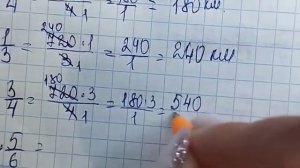 4 4 1 1 180 км
1/3 = 240 720·1 / 3 1 = 240/1 = 240 км
3/4 = 180 720·3 / 4 1 = 180·3/1 = 540
5/6 =